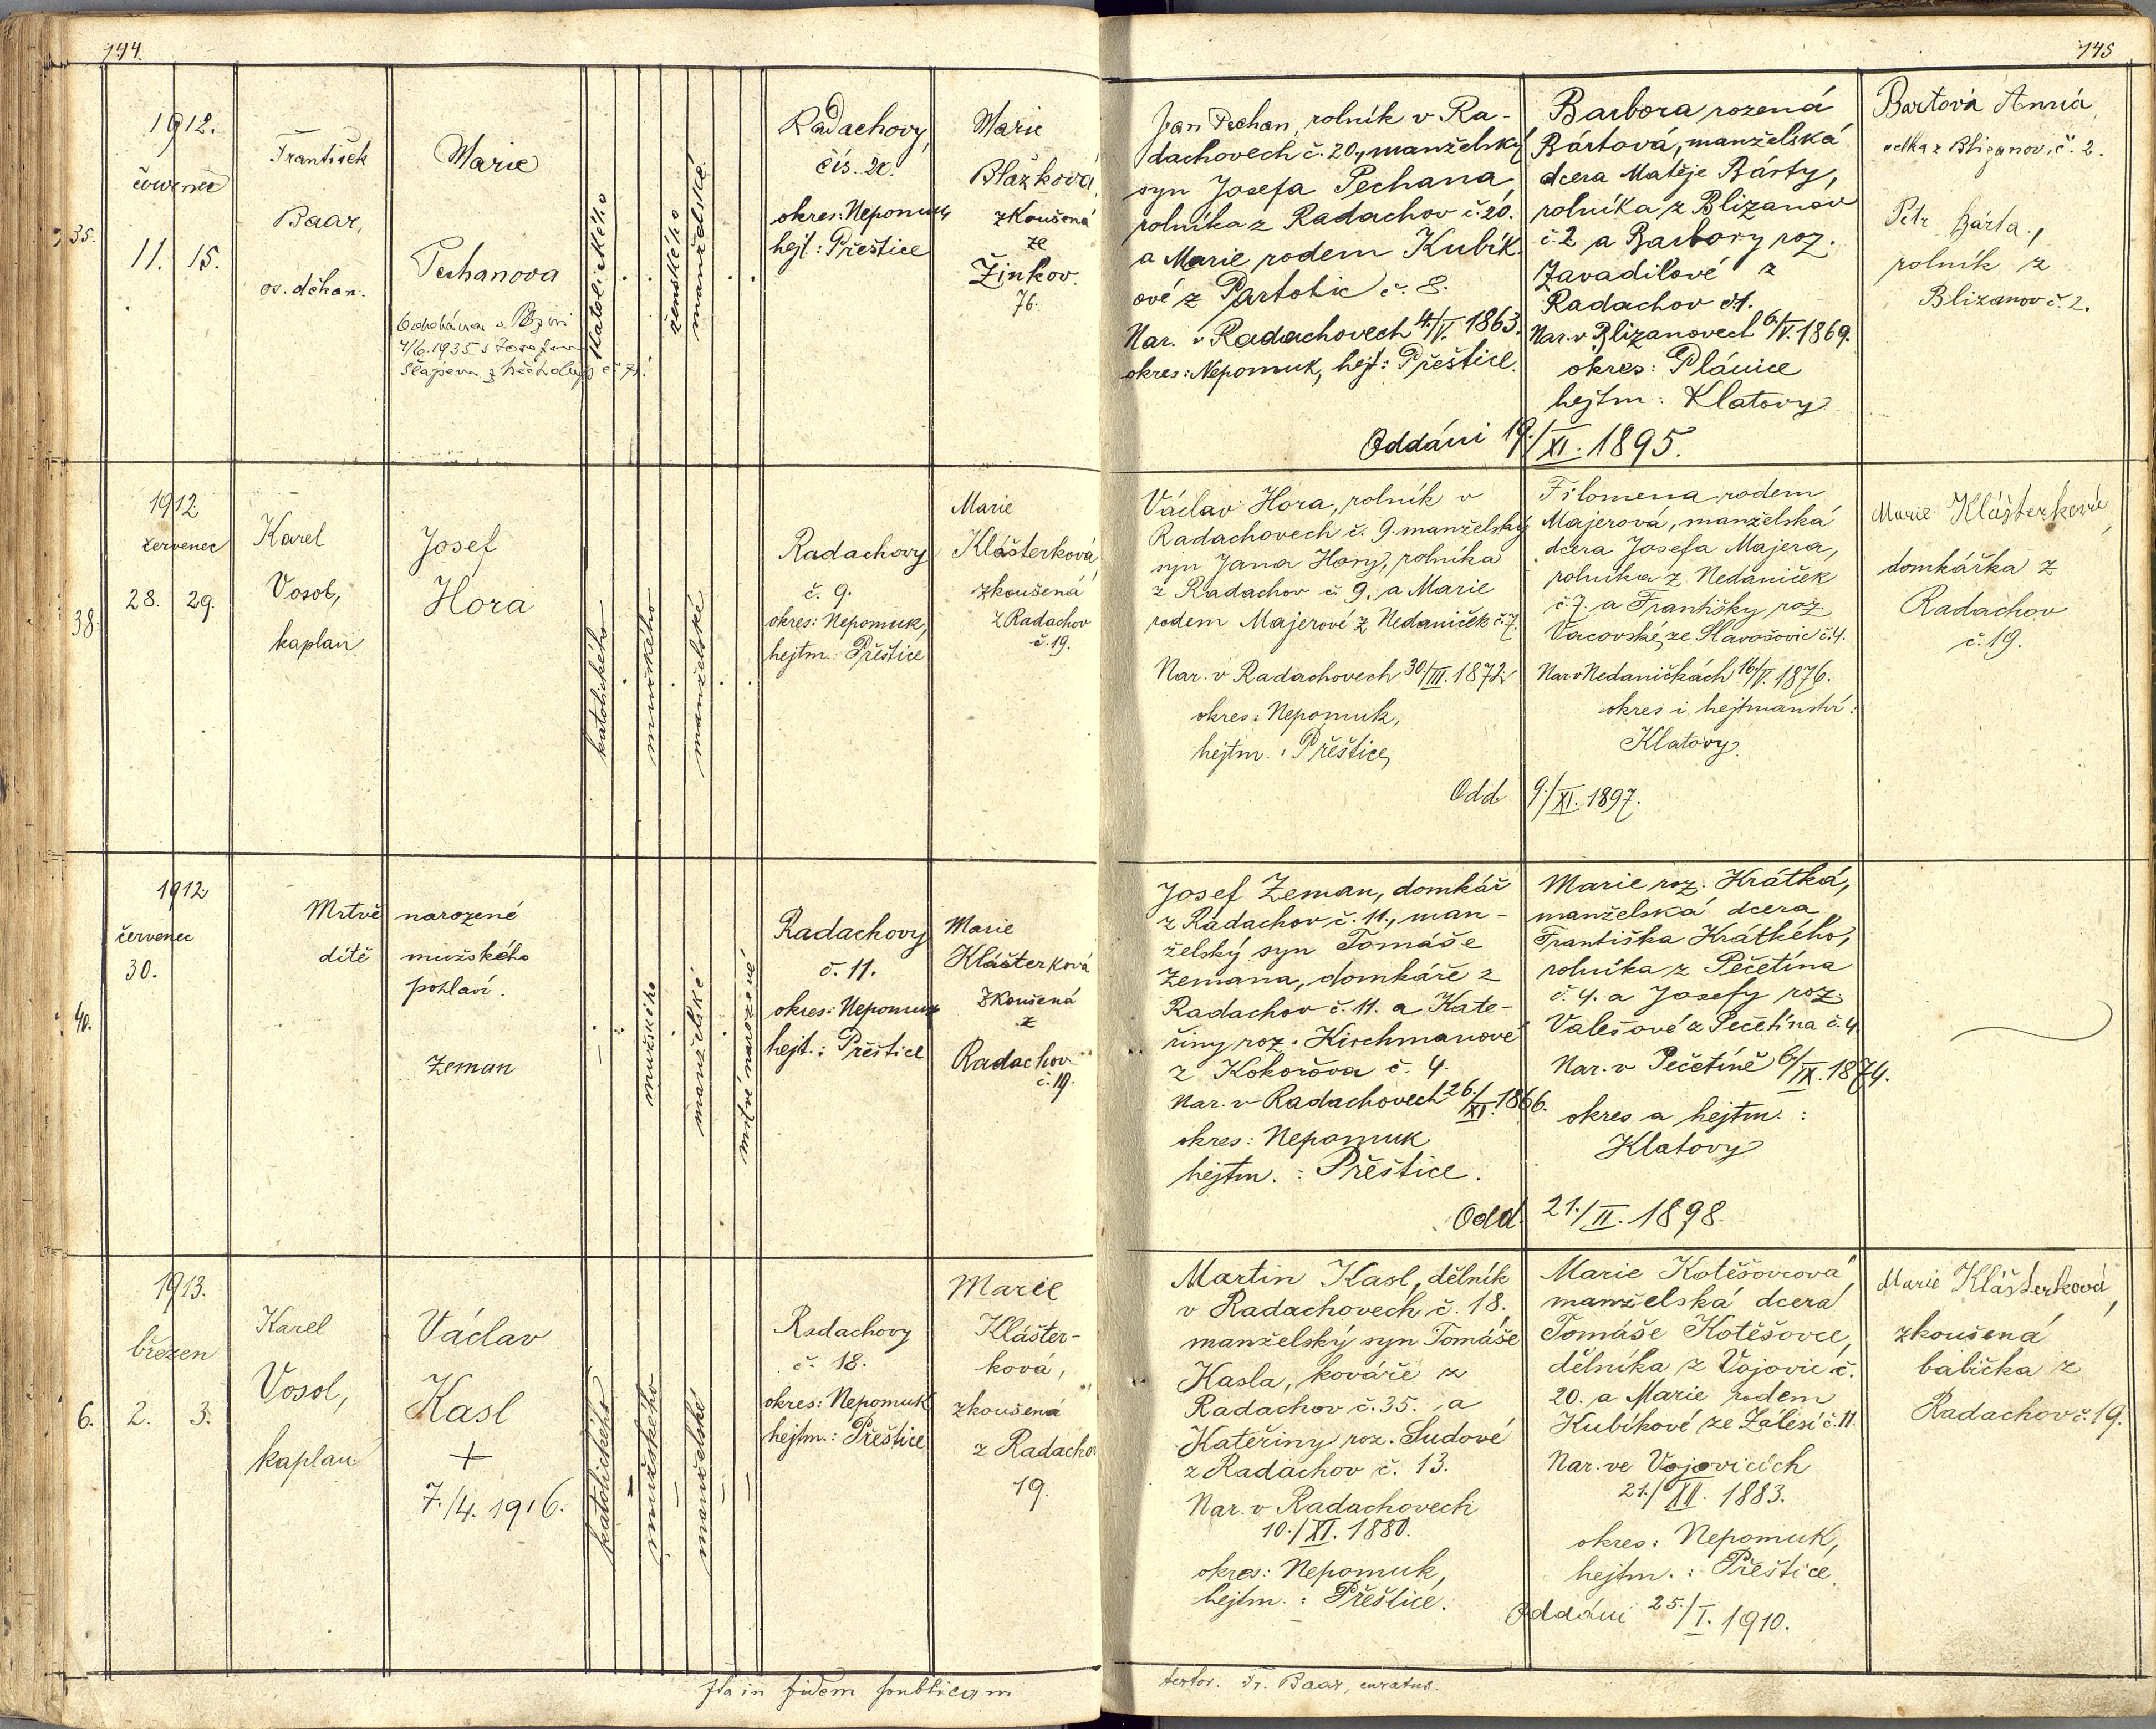 144.
145
1912.
červenec
35.
11. 15.
František
Baar,
os. děkan.
Marie
Pechanova
4/6. 1935 s Josefem
katolického
ženského
manželské
Radachovy,
čís. 20.
okres: Nepomuk
hejt: Přeštice
Marie
Blažková,
zkoušená
ze
Žinkov.
76.
Jan Pechan, rolník v Ra-
dachovech č. 20., manželský
syn Josefa Pechana,
rolníka z Radachov č. 20.
a Marie rodem Kubík-
ové z Partotic č. 8.
Nar. v Radachovech 4./V. 1863.
okres: Nepomuk, hejt: Přeštice.
Barbora rozená
Bártová, manželská
dcera Matěje Bárty,
rolníka z Blizanov
č. 2 a Barbory roz.
Zavadilové z
Radachov č. 1.
Nar. v Blizanovech 6./V. 1869.
okres: Plánice
hejtm: Klatovy
Oddáni 19./XI. 1895.
Bartová Anna,
Blizanov, č. 2.
Petr Bárta,
rolník z
Blizanov č. 2.
1912
červenec
38.
28. 29.
Karel
Vosol,
kaplan
Josef
Hora
katolického
mužského
manželské
Radachovy
č. 9.
okres: Nepomuk,
hejtm.: Přeštice
Marie
Klášterková,
zkoušená
z Radachov
č. 19.
Václav Hora, rolník v
Radachovech č. 9. manželský
syn Jana Hory, rolníka
z Radachov č. 9. a Marie
rodem Majerové z Nedaniček č. 7.
Nar. v Radachovech 30./III. 1872.
okres: Nepomuk,
hejtm.: Přeštice
Filomena rodem
Majerová, manželská
dcera Josefa Majera,
rolníka z Nedaniček
č. 7. a Františky roz.
Vacovské, ze Slavošovic č. 4.
Nar. v Nedaničkách 16./V. 1876.
okres i hejtmanství:
Klatovy.
Odd 9./XI. 1897.
Marie Klášterková,
domkářka z
Radachov
č. 19.
1912
červenec
30.
40.
Mrtvě narozené
dítě mužského
pohlaví.
Zeman
mužského
manželské
mrtvě narozené
Radachovy
č. 11.
okres: Nepomuk
hejt.: Přeštice
Marie
Klášterková
zkoušená
z
Radachov
č. 19.
Josef Zeman, domkář
z Radachov č. 11., man-
želský syn Tomáše
Zemana, domkáře z
Radachov č. 11. a Kate-
řiny roz. Kirchmanové
z Kokořova č. 4.
Nar. v Radachovech 26./XI. 1866.
okres: Nepomuk
hejtm.: Přeštice.
Marie roz. Krátká,
manželská dcera
Františka Krátkého,
rolníka z Pečetína
č. 4. a Josefy roz.
Valešové z Pečetína č. 4.
Nar. v Pečetíně 6./IX. 1874.
okres a hejtm.:
Klatovy
Odd. 21./II. 1898.
1913.
březen
6. 2. 3.
Karel
Vosol,
kaplan
Václav
Kasl
+
7./4. 1916.
katolického
mužského
manželské
Radachovy
č. 18.
okres: Nepomuk
hejtm.: Přeštice
Marie
Klášter-
ková,
zkoušená
z Radachov
19.
Martin Kasl, dělník
v Radachovech č. 18.
manželský syn Tomáše
Kasla, kováře z
Radachov č. 35. a
Kateřiny roz. Sudové
z Radachov č. 13.
Nar. v Radachovech
10./XI. 1880.
okres: Nepomuk,
hejtm.: Přeštice.
Marie Kotěšovcová,
manželská dcera
Tomáše Kotěšovce,
dělníka z Vojovic č.
20. a Marie rodem
Kubíkové ze Zálesí č. 11
Nar. ve Vojovicích
21./XII. 1883.
okres: Nepomuk,
hejtm.: Přeštice.
Oddáni 25./I. 1910.
Marie Klášterková,
zkoušená
babička z
Radachov č. 19.
Ita in fidem publicam
testor. Fr. Baar, curatus.